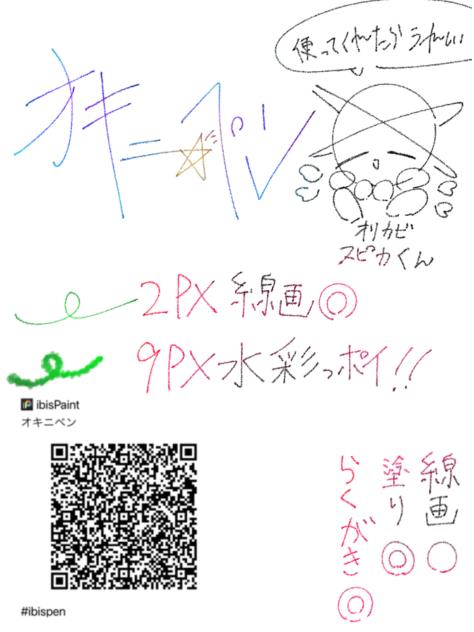 使ってくれたらうれしい
オキニ☆ペン
オリカビ
スピカくん
2PX 線画◎
9PX水彩っポイ!!
ibisPaint
オキニペン
線画○
塗り◎
らくがき◎
#ibispen